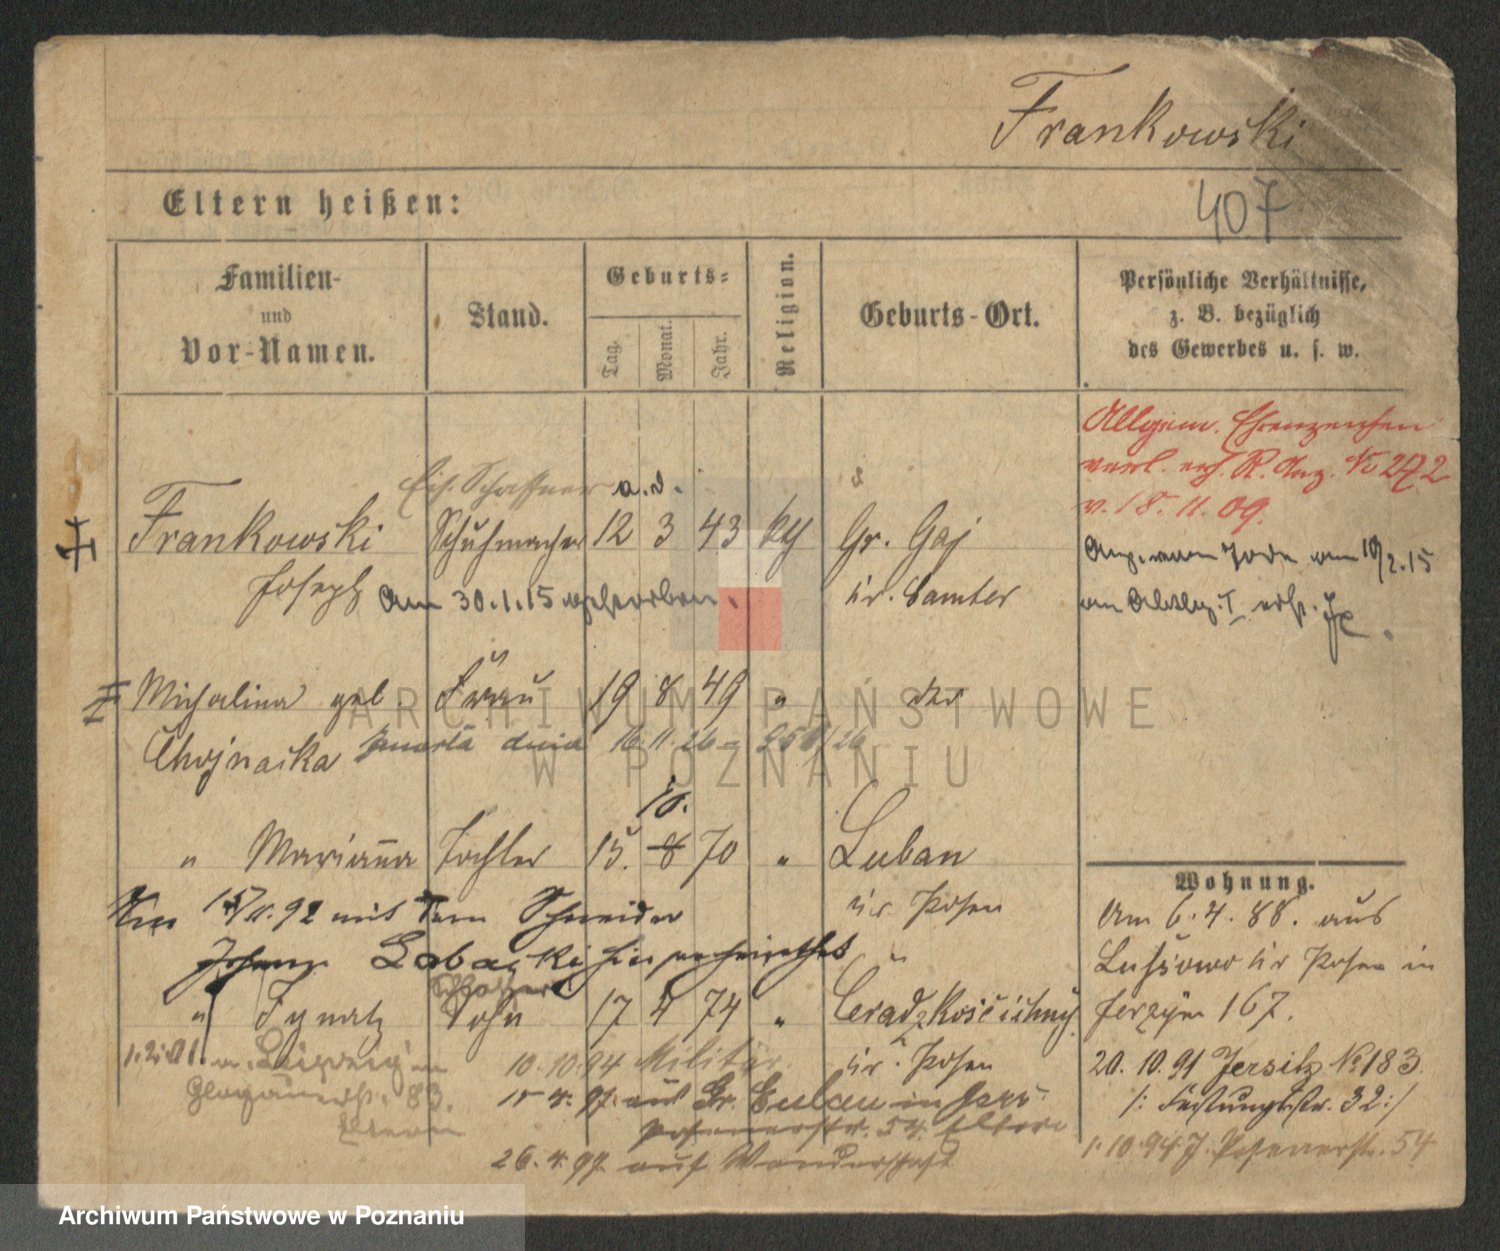 Frankowski
407
Eltern heißen:
Familien- und Vor-Namen.
Stand.
Geburts-
Tag.
Monat.
Jahr.
Religion.
Geburts-Ort.
Persönliche Verhältnisse,
z. B. bezüglich
des Gewerbes u. s. w.
Allgem. Ehrenzeichen
verl. erh. R. Anz. No 272
v. 18. 11. 09.
Schaffner a.D.
Frankowski Schuhmacher 12 3 43 Gr. Gaj
Joseph Am 30.1.15 gestorben. Kr. Samter
Anz. vom Tode am 10/2.15
an Abtlg. I
Michalina geb. Frau 19 8 49 " der
Chojnacka zmarła dnia 16.11.26
10.
" Marianna Tochter 15. 8 70 " Luban
Kr. Posen
Am 15/11.92 mit dem Schneider
hier verheirathet
" Ignatz Sohn 17 4 74 "
Kr. Posen
1.2.01.
83.
Eltern
10.10.94 Militär
15.4.97. aus Gr. Luban in
Posenerstr. 54. Eltern
26.4.97 auf Wanderschaft
Wohnung.
Am 6.4.88. aus
Kr Posen in
Jerzyce 167.
20.10.91 Jersitz No 183.
/: Festungsstr. 32:/
1.10.94 J. Posenerstr. 54
ARCHIWUM PAŃSTWOWE
W POZNANIU
Archiwum Państwowe w Poznaniu